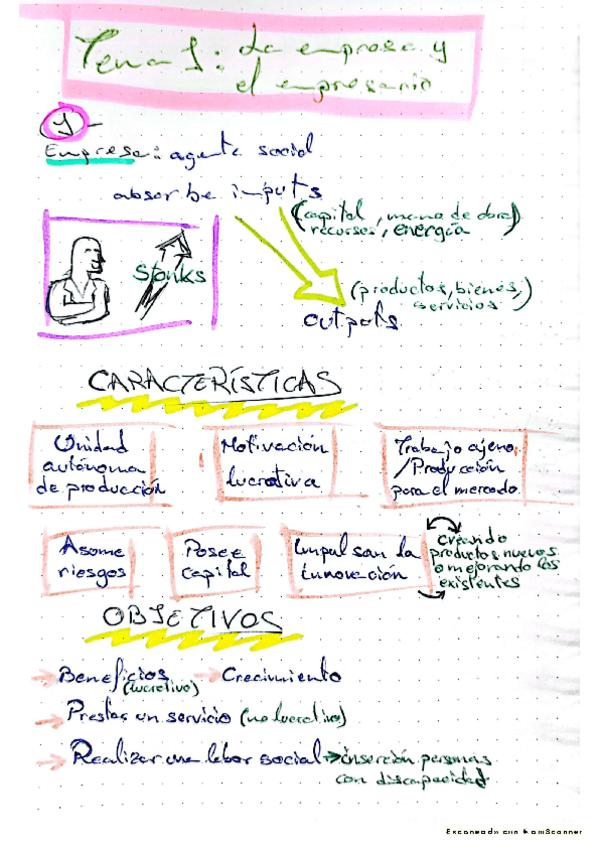 Tema 1: La empresa y
el empresario
1-
Empresa: agente social
absorbe imputs
(capital, mano de obra,
recursos, energía)
Stonks
(productos, bienes,
servicios)
outputs
CARACTERÍSTICAS
Unidad
autónoma
de producción
Motivación
lucrativa
Trabajo ajeno
/Producción
para el mercado
Asome
riesgos
Posee
capital
Impulsan la
innovación
creando
productos nuevos
o mejorando los
existentes
OBJETIVOS
→ Beneficios → Crecimiento
(lucrativo)
→ Prestar un servicio (no lucrativo)
→ Realizar una labor social → inserción personas
con discapacidad
Escaneado con CamScanner